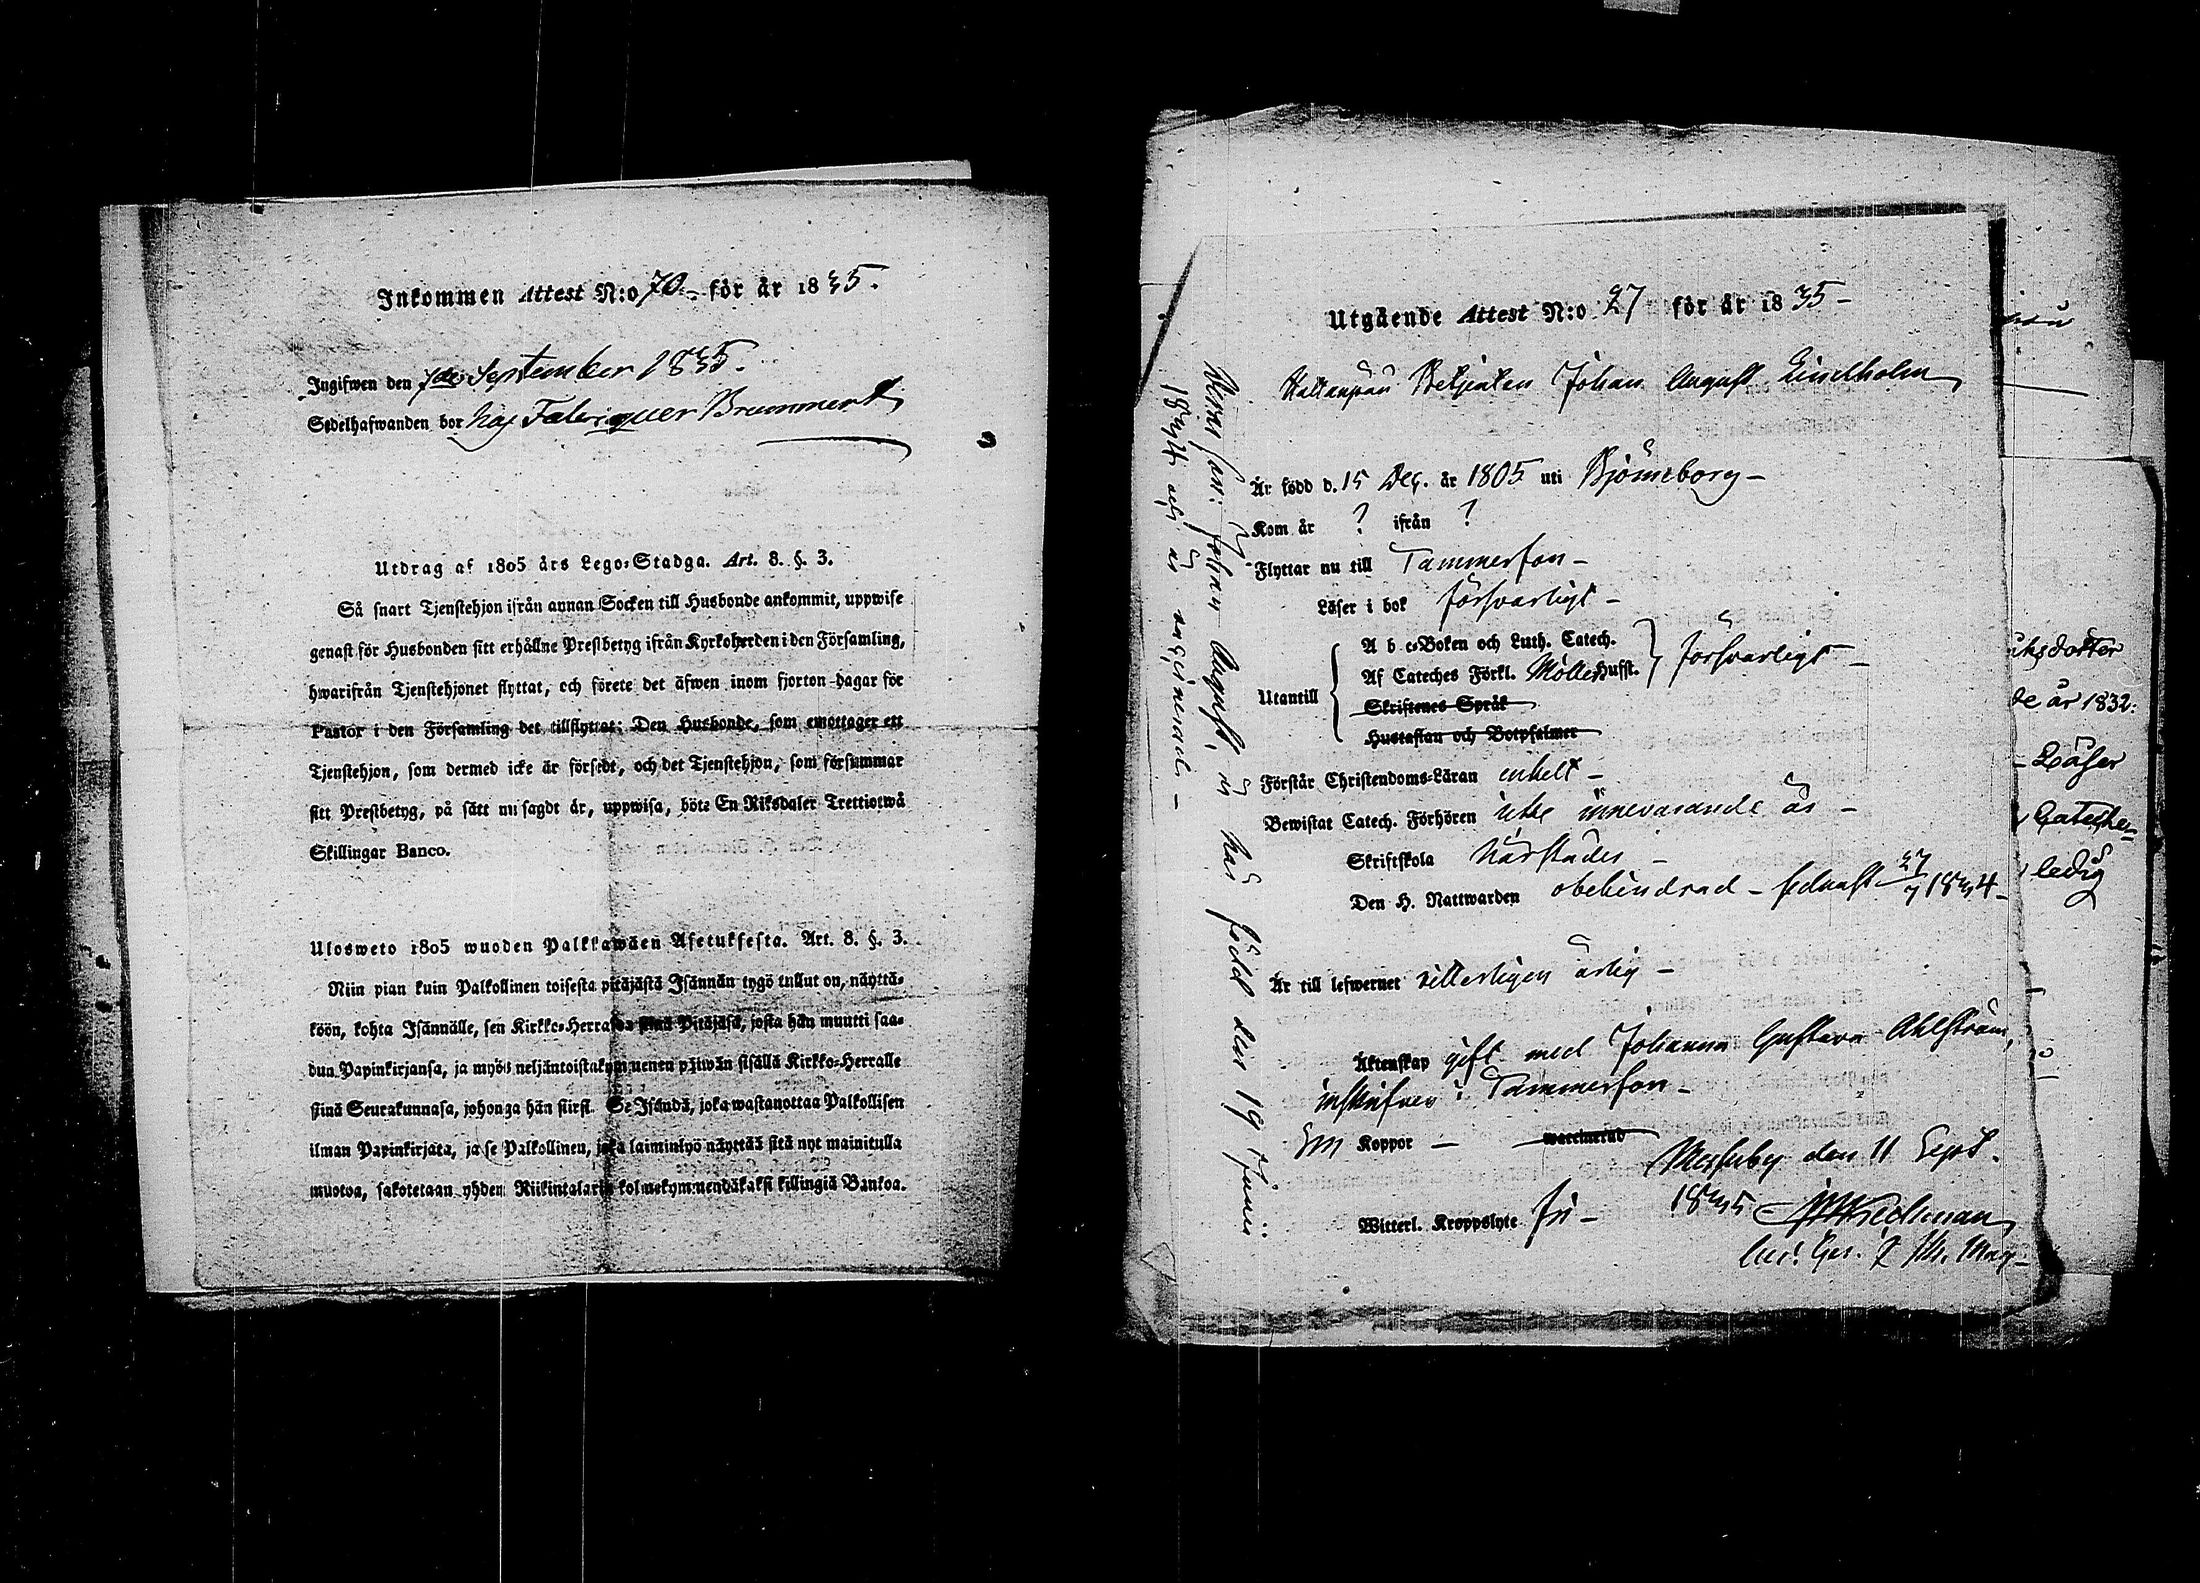 Inkommen Attest N:o 70 för år 1835.
Ingifwen den 7de September 1835.
Sedelhafwanden bor hos Fabriquer Brummert
Utdrag af 1805 års Lego-Stadga. Art. 8. §. 3.
Så snart Tjenstehjon ifrån annan Socken till Husbonde ankommit, uppwise
genast för Husbonden sitt erhållne Prestbetyg ifrån Kyrkoherden i den Församling,
hwarifrån Tjenstehjonet flyttat, och förete det äfwen inom fjorton dagar för
Pastor i den Församling det tillflyttat; Den Husbonde, som emottager ett
Tjenstehjon, som dermed icke är försedt, och det Tjenstehjon, som försummar
sitt Prestbetyg, på sätt nu sagdt är, uppwisa, böte En Riksdaler Trettiotwå
Skillingar Banco.
Ulosweto 1805 wuoden Palkkawäen Asetuksesta. Art. 8. §. 3.
Niin pian kuin Palkollinen toisesta pitäjästä Isännän tygö tullut on, näyttä-
köön, kohta Isännälle, sen Kirkko-Herralta siinä Pitäjäsä, josta hän muutti saa-
dun Papinkirjansa, ja myös neljäntoistakymmenen päiwän sisällä Kirkko-Herralle
siinä Seurakunnasa, johonga hän siirsi. Se Isändä, joka wastanottaa Palkollisen
ilman Papinkirjata, ja se Palkollinen, joka laiminlyö näyttää sitä nyt mainitulla
muotoa, sakotetaan yhden Riikintalarin kolmekymmendäkaksi killingiä Bankoa.
Utgående Attest N:o 27 för år 1835 -
Betjenten Johan August Lindholm
Är född d. 15 Dec. år 1805 uti Björneborg -
Kom år ? ifrån ?
Flyttar nu till Tammerfors -
Läser i bok försvarligt -
Utantill
A b c-Boken och Luth. Catech.
Af Cateches Förkl. Möllers Hufst.
försvarligt -
Skriftenes Språk
Hustaflan och Botpsalmer
Förstår Christendoms-Läran enkelt -
Bewistat Catech. Förhören icke innevarande år -
Skriftskola
Den H. Nattwarden obehindrad - sednast 27/7 1834 -
Är till lefwernet witterligen ärlig -
Äktenskap gift med Johanna Gustava Ahlström,
inskrifven i Tammerfors -
Koppor - waccinerad
Witterl. Kroppslyte fri -
Messuby den 11 Sept.
1835
Deras son: Johan August, är här född den 19 Junii
1834 och är
ksdotter
år 1832:
- Läser
Cateche-
ledig